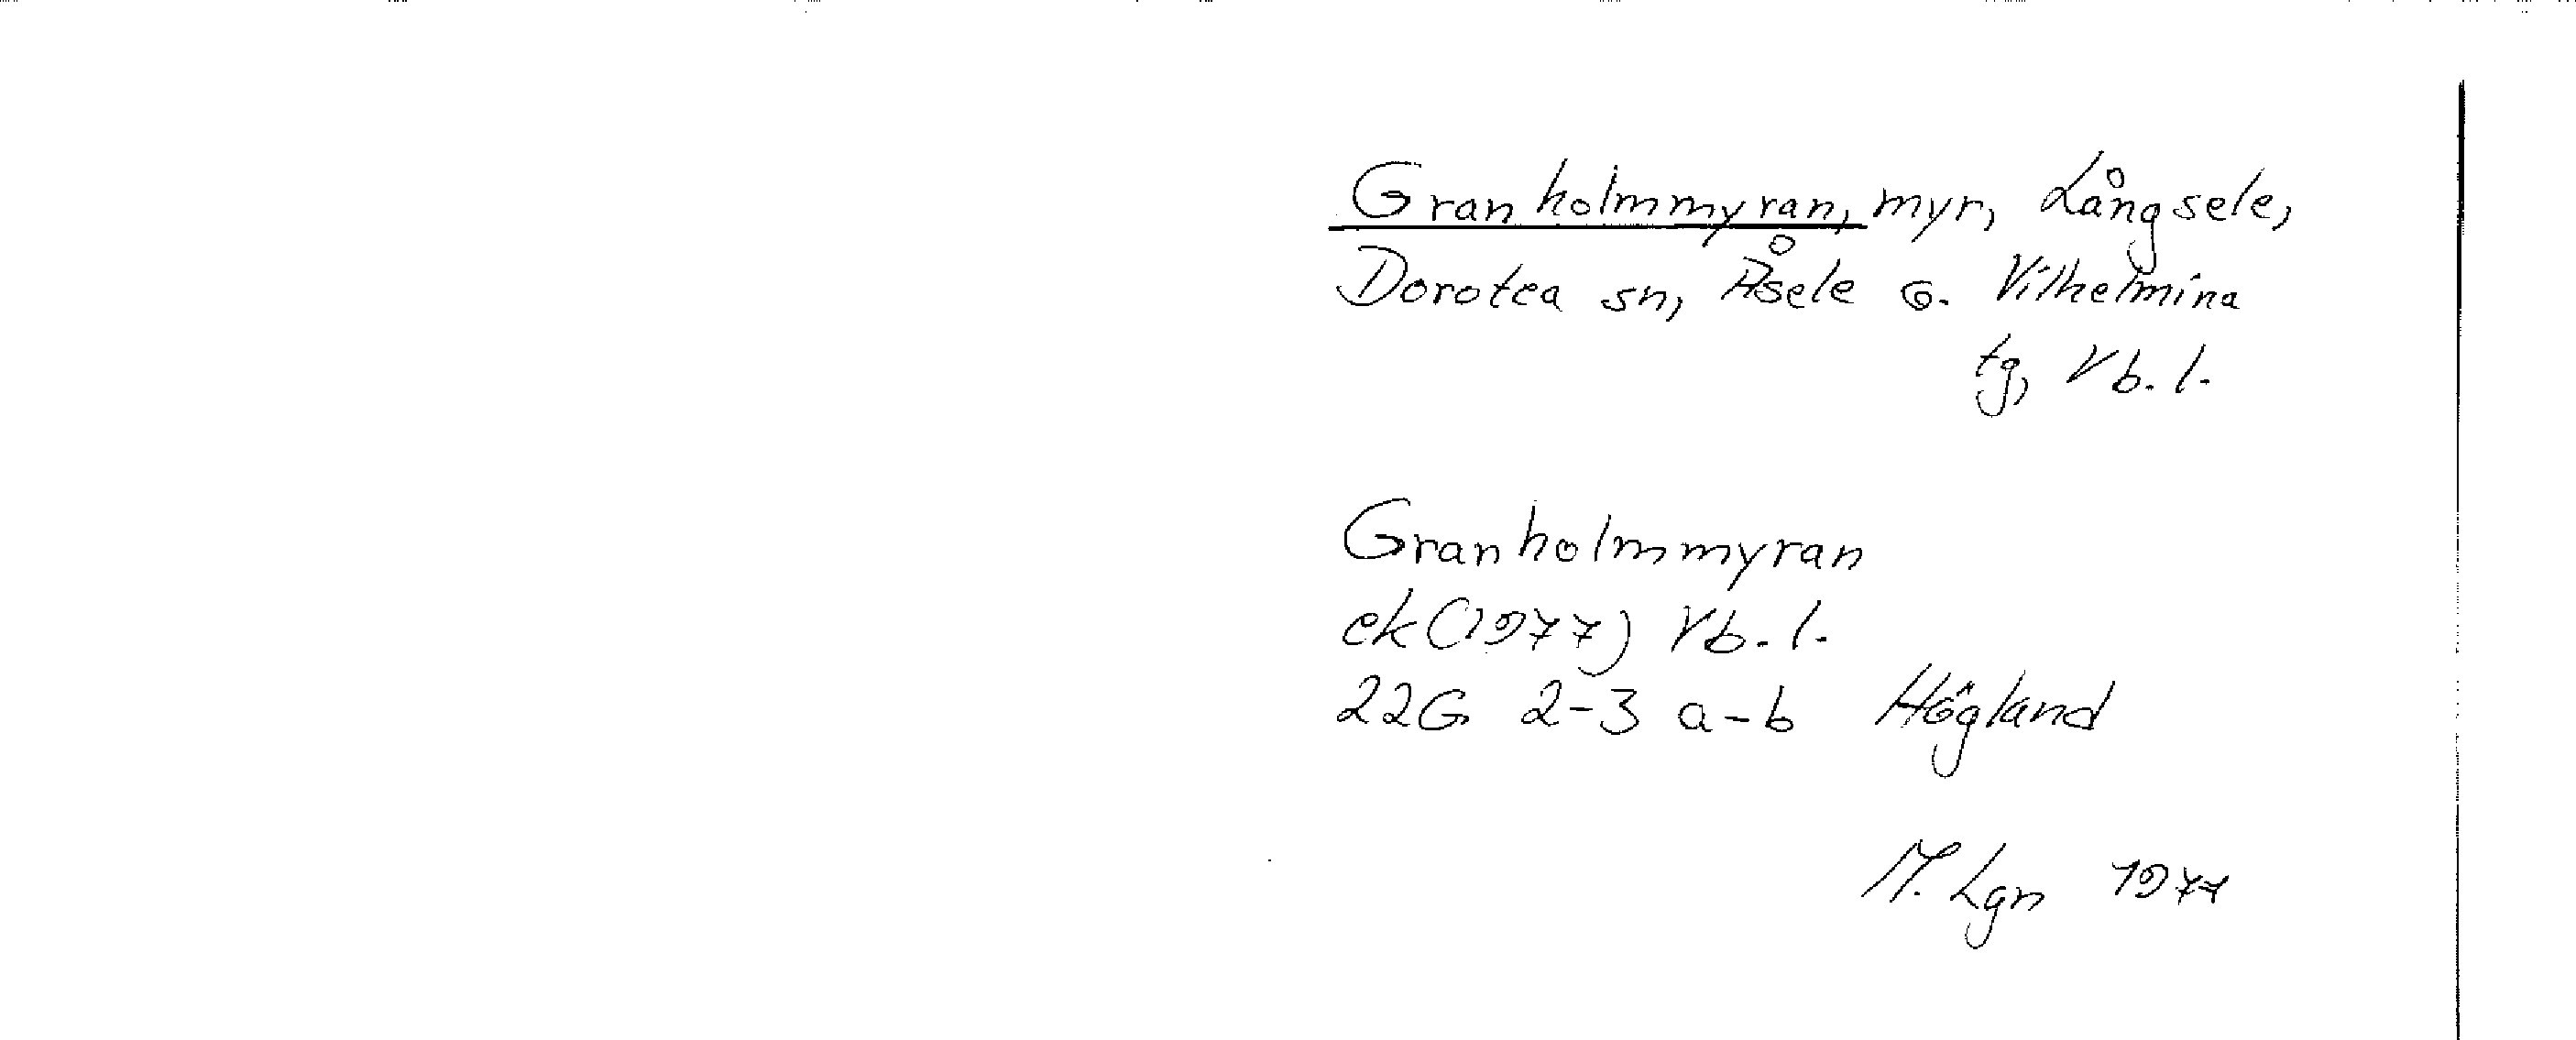 Granholmmyran, myr, Långsele,
Dorotea sn, Åsele o. Vilhelmina
tg, Vb. l.
Granholmmyran
ek (1977) Vb. l.
22G 2-3 a-b Högland
M. Lgn 1977